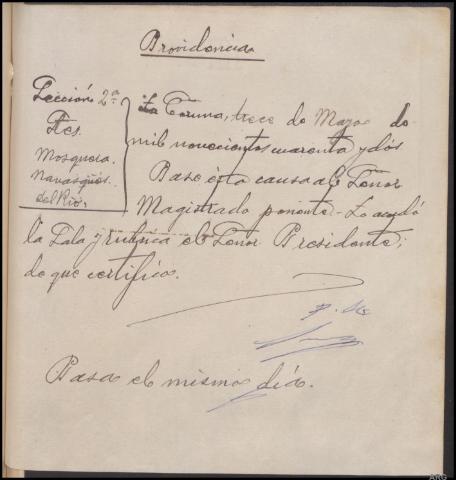 Providencia
Sección 2ª
Sres.
Mosquera.
Navasqües.
del Rio.
La Coruña, trece de Mayo de
mil novecientos cuarenta y dos
Pase ésta causa al Señor
Magistrado ponente. Lo acordó
la Sala y rubrica el Señor Presidente;
de que certifico.
Pasa el mismo día.
ARG